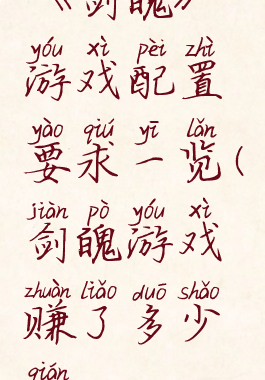 《剑魄》
yóu xì pèi zhì
游戏配置
yào qiú yī lǎn
要求一览（
jiàn pò yóu xì
剑魄游戏
zhuàn liǎo duō shǎo
赚了多少
qián